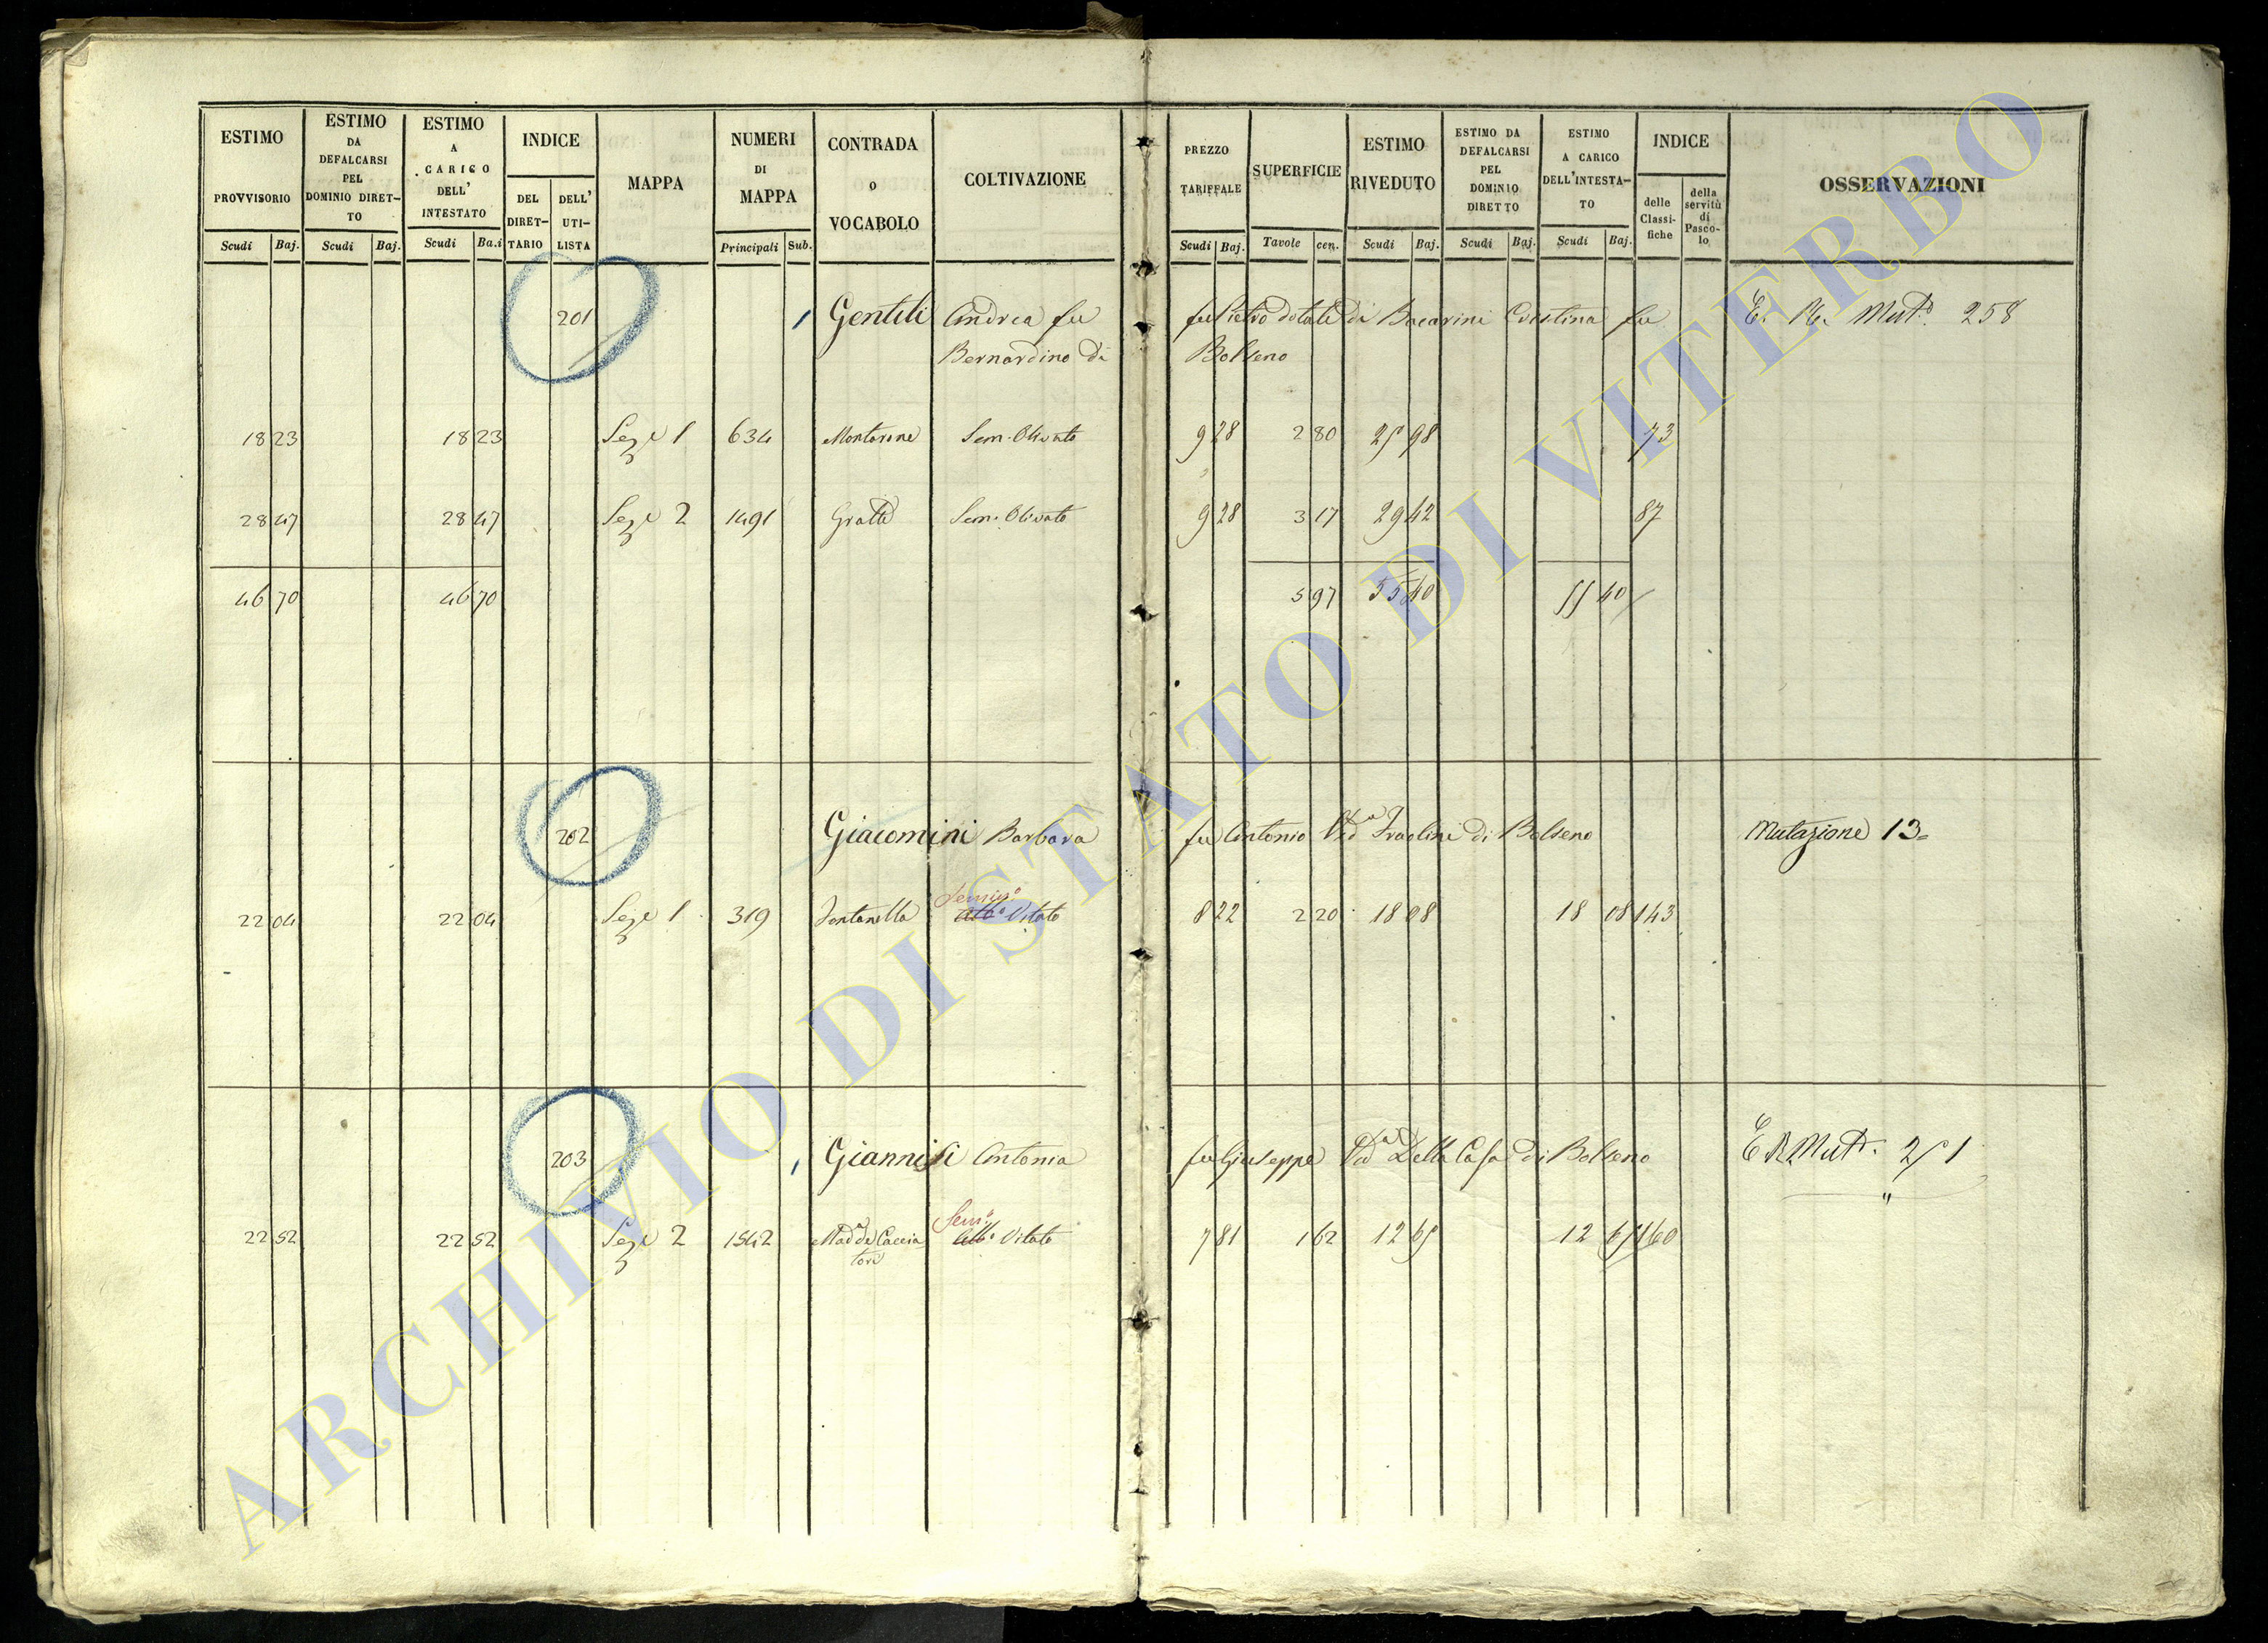 ESTIMO PROVVISORIO
Scudi Baj.
ESTIMO DA DEFALCARSI PEL DOMINIO DIRETTO
Scudi Baj.
ESTIMO A CARICO DELL' INTESTATO
Scudi Ba.i
INDICE
DEL DIRETTARIO
DELL' UTILISTA
MAPPA
NUMERI DI MAPPA
Principali Sub.
CONTRADA O VOCABOLO
COLTIVAZIONE
PREZZO TARIFFALE
Scudi Baj.
SUPERFICIE
Tavole cen.
ESTIMO RIVEDUTO
Scudi Baj.
ESTIMO DA DEFALCARSI PEL DOMINIO DIRETTO
Scudi Baj.
ESTIMO A CARICO DELL'INTESTATO
Scudi Baj.
INDICE
delle Classifiche
della servitù di Pascolo
OSSERVAZIONI
201 1 Gentili Andrea fu fu Pietro dotale di Bacarini Cristina fu Mut.e 258
Bernardino di Bolseno
18 23 18 23 Sez.e 1 634 Montarone Sem. Olivato 9 28 2 80 25 98 73
28 47 28 47 Sez.e 2 1491 Gratte Sem. Olivato 9 28 3 17 29 42 87
46 70 46 70 5 97 55 40 55 40
202 Giacomini Barbara fu Antonio Ved.a di Bolseno Mutazione 13
Semin.o
22 04 22 04 Sez.e 1 319 Fontanella Alb.o Vitato 8 22 2 20 18 08 18 08 143
203 1 Antonia fu Giuseppe Ved.a Della Casa di Bolseno E R Mut. 251
"
Sem.o
22 52 22 52 Sez.e 2 1542 Mad.a de Caccia Alb.o Vitato 7 81 1 62 12 65 12 65 160
tori
ARCHIVIO DI STATO DI VITERBO